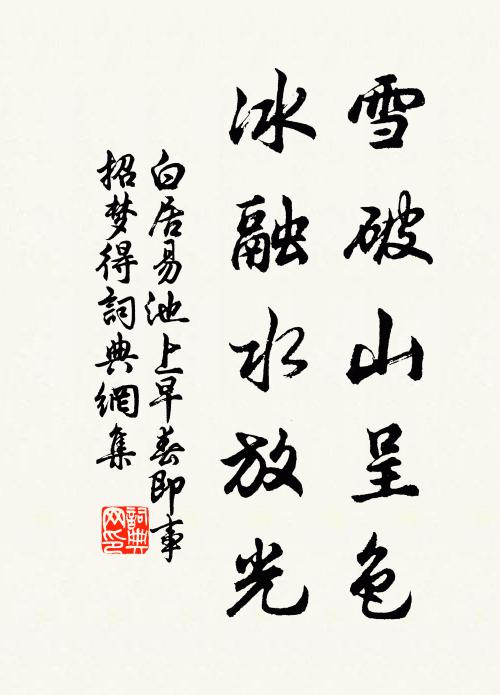 雪破山呈色
冰融水放光
白居易池上早春即事
招梦得詞典網集
詞典网印